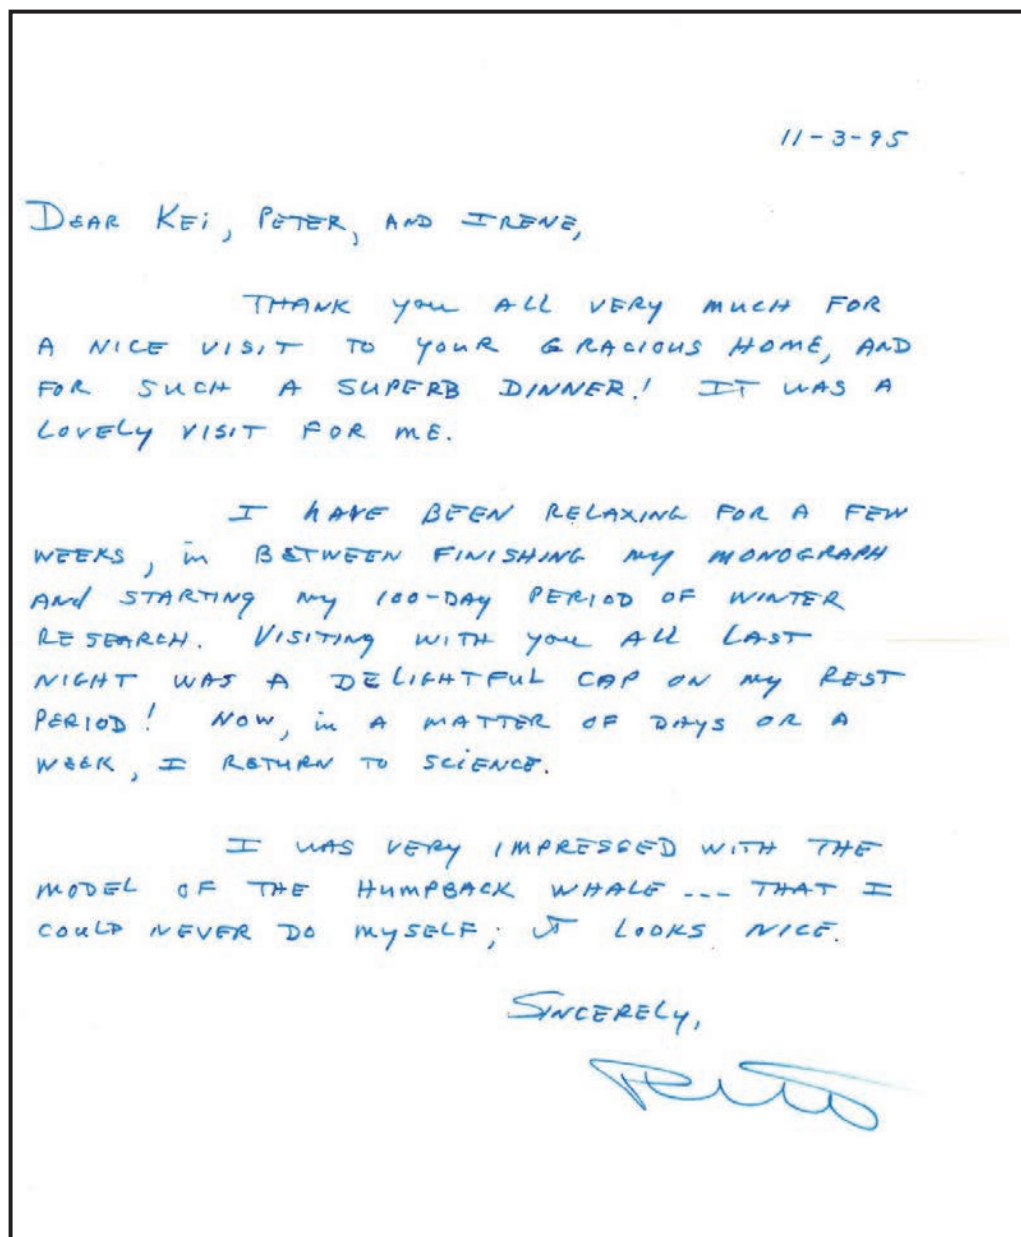 11-3-95
DEAR KEi, PETER, AND IRENE,
THANK you ALL VERY MUCH FOR
A NICE VISIT TO YOUR GRACIOUS HOME, AND
FOR SUCH A SUPERB DINNER! IT WAS A
LOVELY VISIT FOR ME.
I HAVE BEEN RELAXING FOR A FEW
WEEKS, in BETWEEN FINISHING MY MONOGRAPH
AND STARTING MY 100-DAY PERIOD OF WINTER
RESEARCH. VISITING WITH you ALL LAST
NIGHT WAS A DELIGHTFUL CAP ON MY REST
PERIOD! NOW, in A MATTER OF DAYS OR A
WEEK, I RETURN TO SCIENCE.
I WAS VERY IMPRESSED WITH THE
MODEL OF THE HUMPBACK WHALE --- THAT I
COULD NEVER DO MYSELF; IT LOOKS NICE.
SINCERELY,